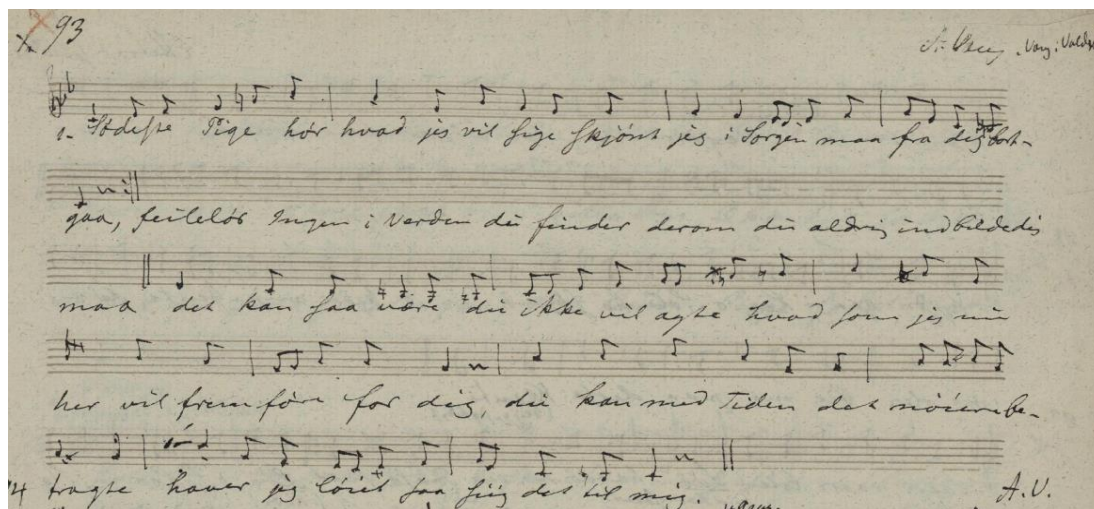 X. 93
Vang i Vald
1. Sødeste Pige hør hvad jeg vil sige skjønt jeg i Sorgen maa fra dig bort-
gaa, feileløs Ingen i Verden du finder derom du aldrig indbilde dig
maa det kan saa være du ikke vil agte hvad som jeg nu
her vil fremføre for dig, du kan med Tiden det nøiere be-
tragte haver jeg løiet saa siig det til mig.
A.V.